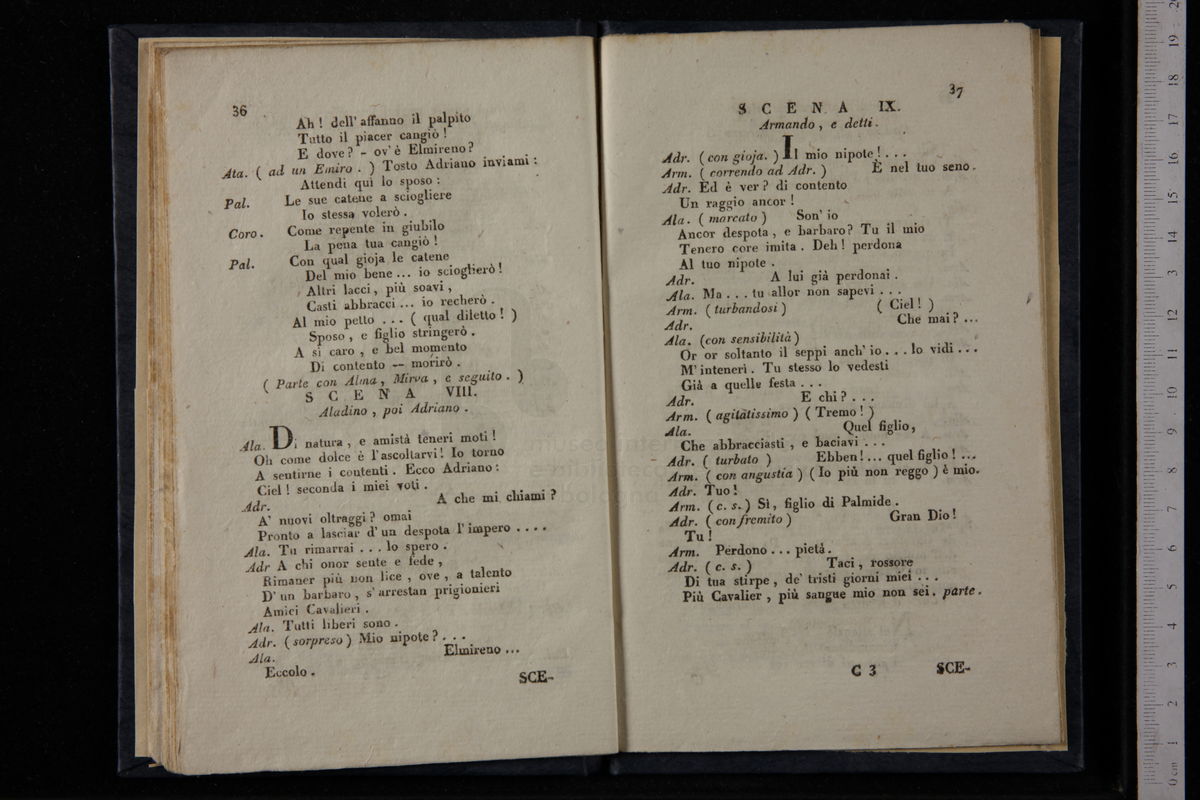 36
Ah ! dell' affanno il palpito
Tutto il piacer cangiò !
E dove ? - ov'è Elmireno ?
Ata. ( ad un Emiro . ) Tosto Adriano inviami :
Attendi qui lo sposo :
Pal. Le sue catene a sciogliere
Io stessa volerò .
Coro . Come repente in giubilo
La pena tua cangiò !
Pal. Con qual gioja le catene
Del mio bene ... io scioglierò !
Altri lacci , più soavi ,
Casti abbracci ... io recherò .
Al mio petto ... ( qual diletto ! )
Sposo , e figlio stringerò .
A sì caro , e bel momento
Di contento — morirò .
( Parte con Alma , Mirva , e seguito . )
S C E N A VIII.
Aladino , poi Adriano .
Ala. Di natura , e amistà teneri moti !
Oh come dolce è l'ascoltarvi ! Io torno
A sentirne i contenti . Ecco Adriano :
Ciel ! seconda i miei voti .
Adr. A che mi chiami ?
A' nuovi oltraggi ? omai
Pronto a lasciar d'un despota l'impero ....
Ala. Tu rimarrai ... lo spero .
Adr A chi onor sente e fede ,
Rimaner più non lice , ove , a talento
D'un barbaro , s'arrestan prigionieri
Amici Cavalieri .
Ala. Tutti liberi sono .
Adr. ( sorpreso ) Mio nipote ? ...
Ala. Elmireno ...
Eccolo .
SCE-
37
S C E N A IX.
Armando , e detti .
Adr. ( con gioja. ) Il mio nipote ! ...
Arm. ( correndo ad Adr. ) È nel tuo seno .
Adr. Ed è ver ? di contento
Un raggio ancor !
Ala. ( marcato ) Son' io
Ancor despota , e barbaro ? Tu il mio
Tenero core imita . Deh ! perdona
Al tuo nipote .
Adr. A lui già perdonai .
Ala. Ma ... tu allor non sapevi ...
Arm. ( turbandosi ) ( Ciel ! )
Adr. Che mai ? ...
Ala. (con sensibilità )
Or or soltanto il seppi anch'io ... lo vidi ...
M'intenerì . Tu stesso lo vedesti
Già a quelle festa ...
Adr. E chi ? ...
Arm. ( agitatissimo ) ( Tremo ! )
Ala. Quel figlio,
Che abbracciasti , e baciavi ...
Adr. ( turbato ) Ebben ! ... quel figlio ! ...
Arm. ( con angustia ) ( Io più non reggo ) è mio.
Adr. Tuo !
Arm. ( c. s. ) Sì, figlio di Palmide .
Adr. ( con fremito ) Gran Dio !
Tu !
Arm. Perdono ... pietà .
Adr. ( c. s. ) Taci , rossore
Di tua stirpe , de' tristi giorni miei ...
Più Cavalier , più sangue mio non sei. parte .
C 3 SCE-